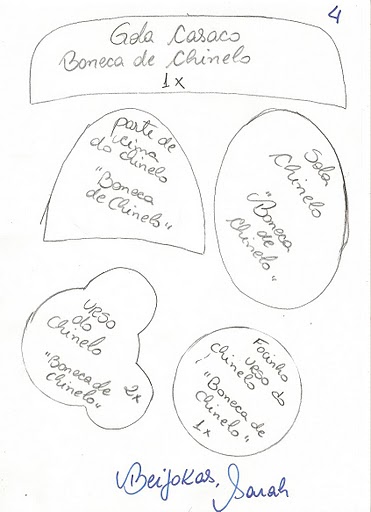 4
Gola Casaco
Boneca de Chinelo
1x
parte de
cima
do chinelo
"Boneca
de Chinelo"
Sola
Chinelo
"Boneca
de
Chinelo"
urso
do
chinelo
"Boneca de
Chinelo"
2x
Focinho
urso do
chinelo
"Boneca de
Chinelo"
1x
Beijokas,
Sarah